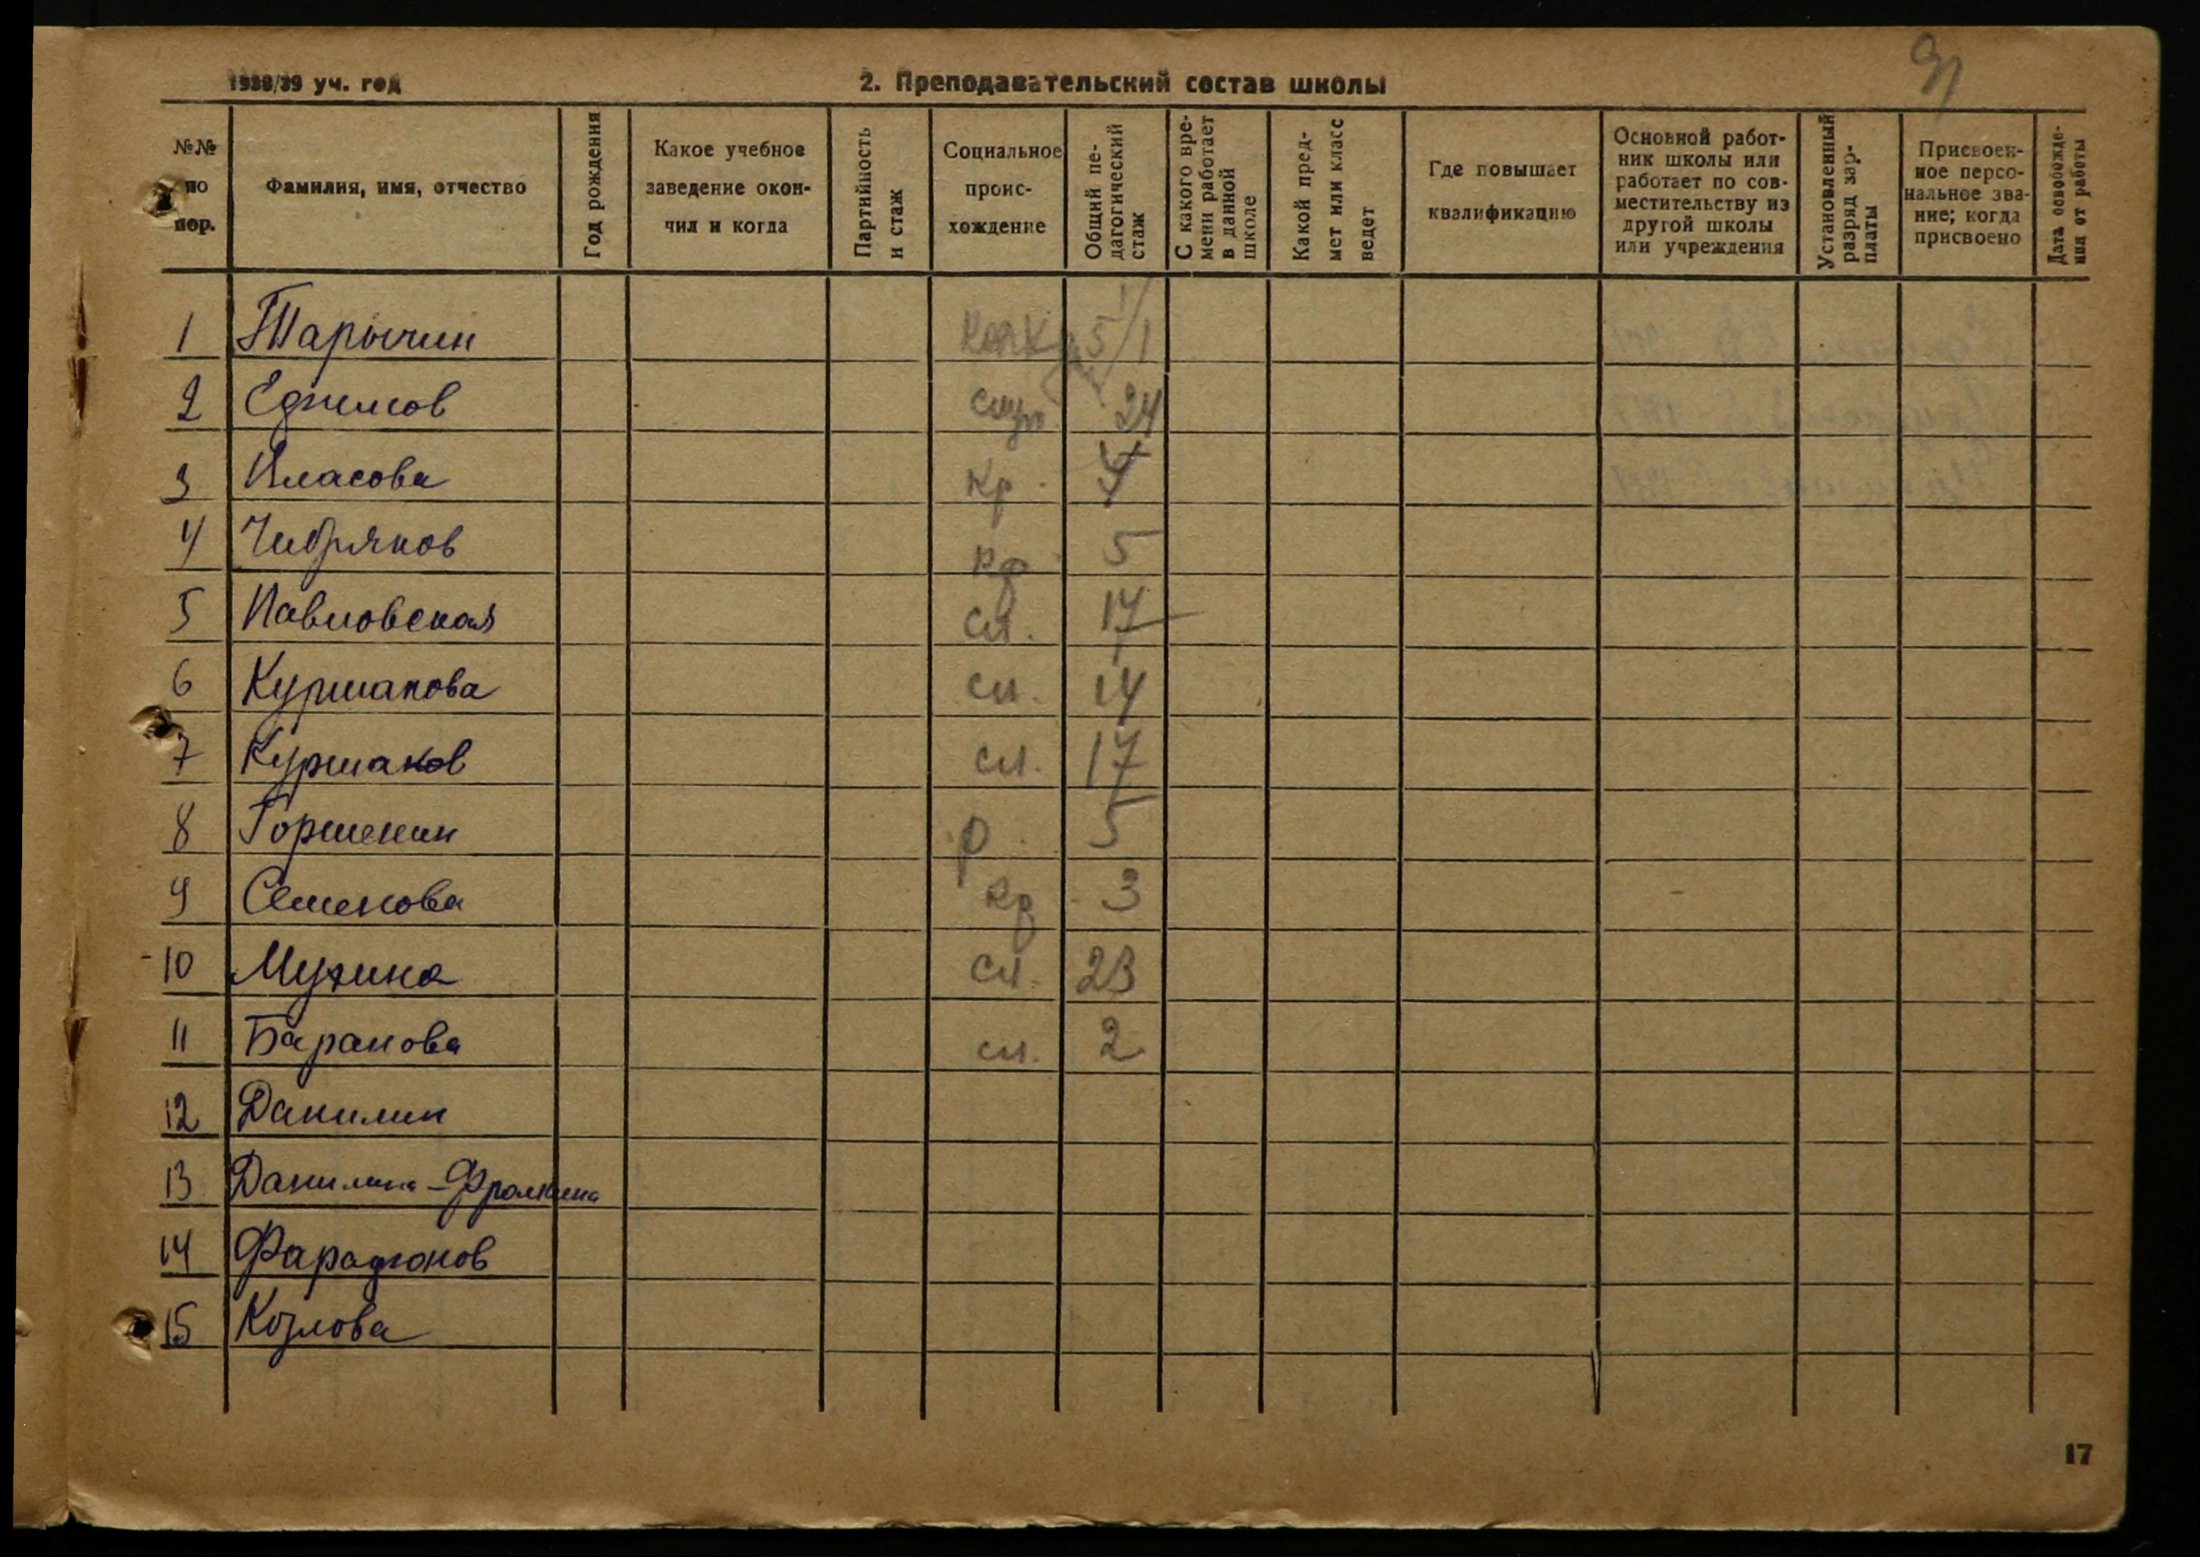 1938/39 уч. год
2. Преподавательский состав школы
№№ по пор.
Фамилия, имя, отчество
Год рождения
Какое учебное заведение окончил и когда
Партийность и стаж
Социальное происхождение
Общий педагогический стаж
С какого времени работает в данной школе
Какой предмет или класс ведет
Где повышает квалификацию
Основной работник школы или работает по совместительству из другой школы или учреждения
Установленный разряд зарплаты
Присвоенное персональное звание; когда присвоено
Дата освобождения от работы
1 5/1
2 служ. 24
3 Власова кр.
4 Чибряков кр. 5
5 Павловская сл. 17
6 Куршакова сл. 14
7 Куршаков сл. 17
8 Горшенин р. 5
9 Семенова кр. 3
10 Мухина сл. 23
11 Баранова сл. 2
12 Данилин
13 Данилина-Фролкина
14 Фарафонов
15 Козлова
17